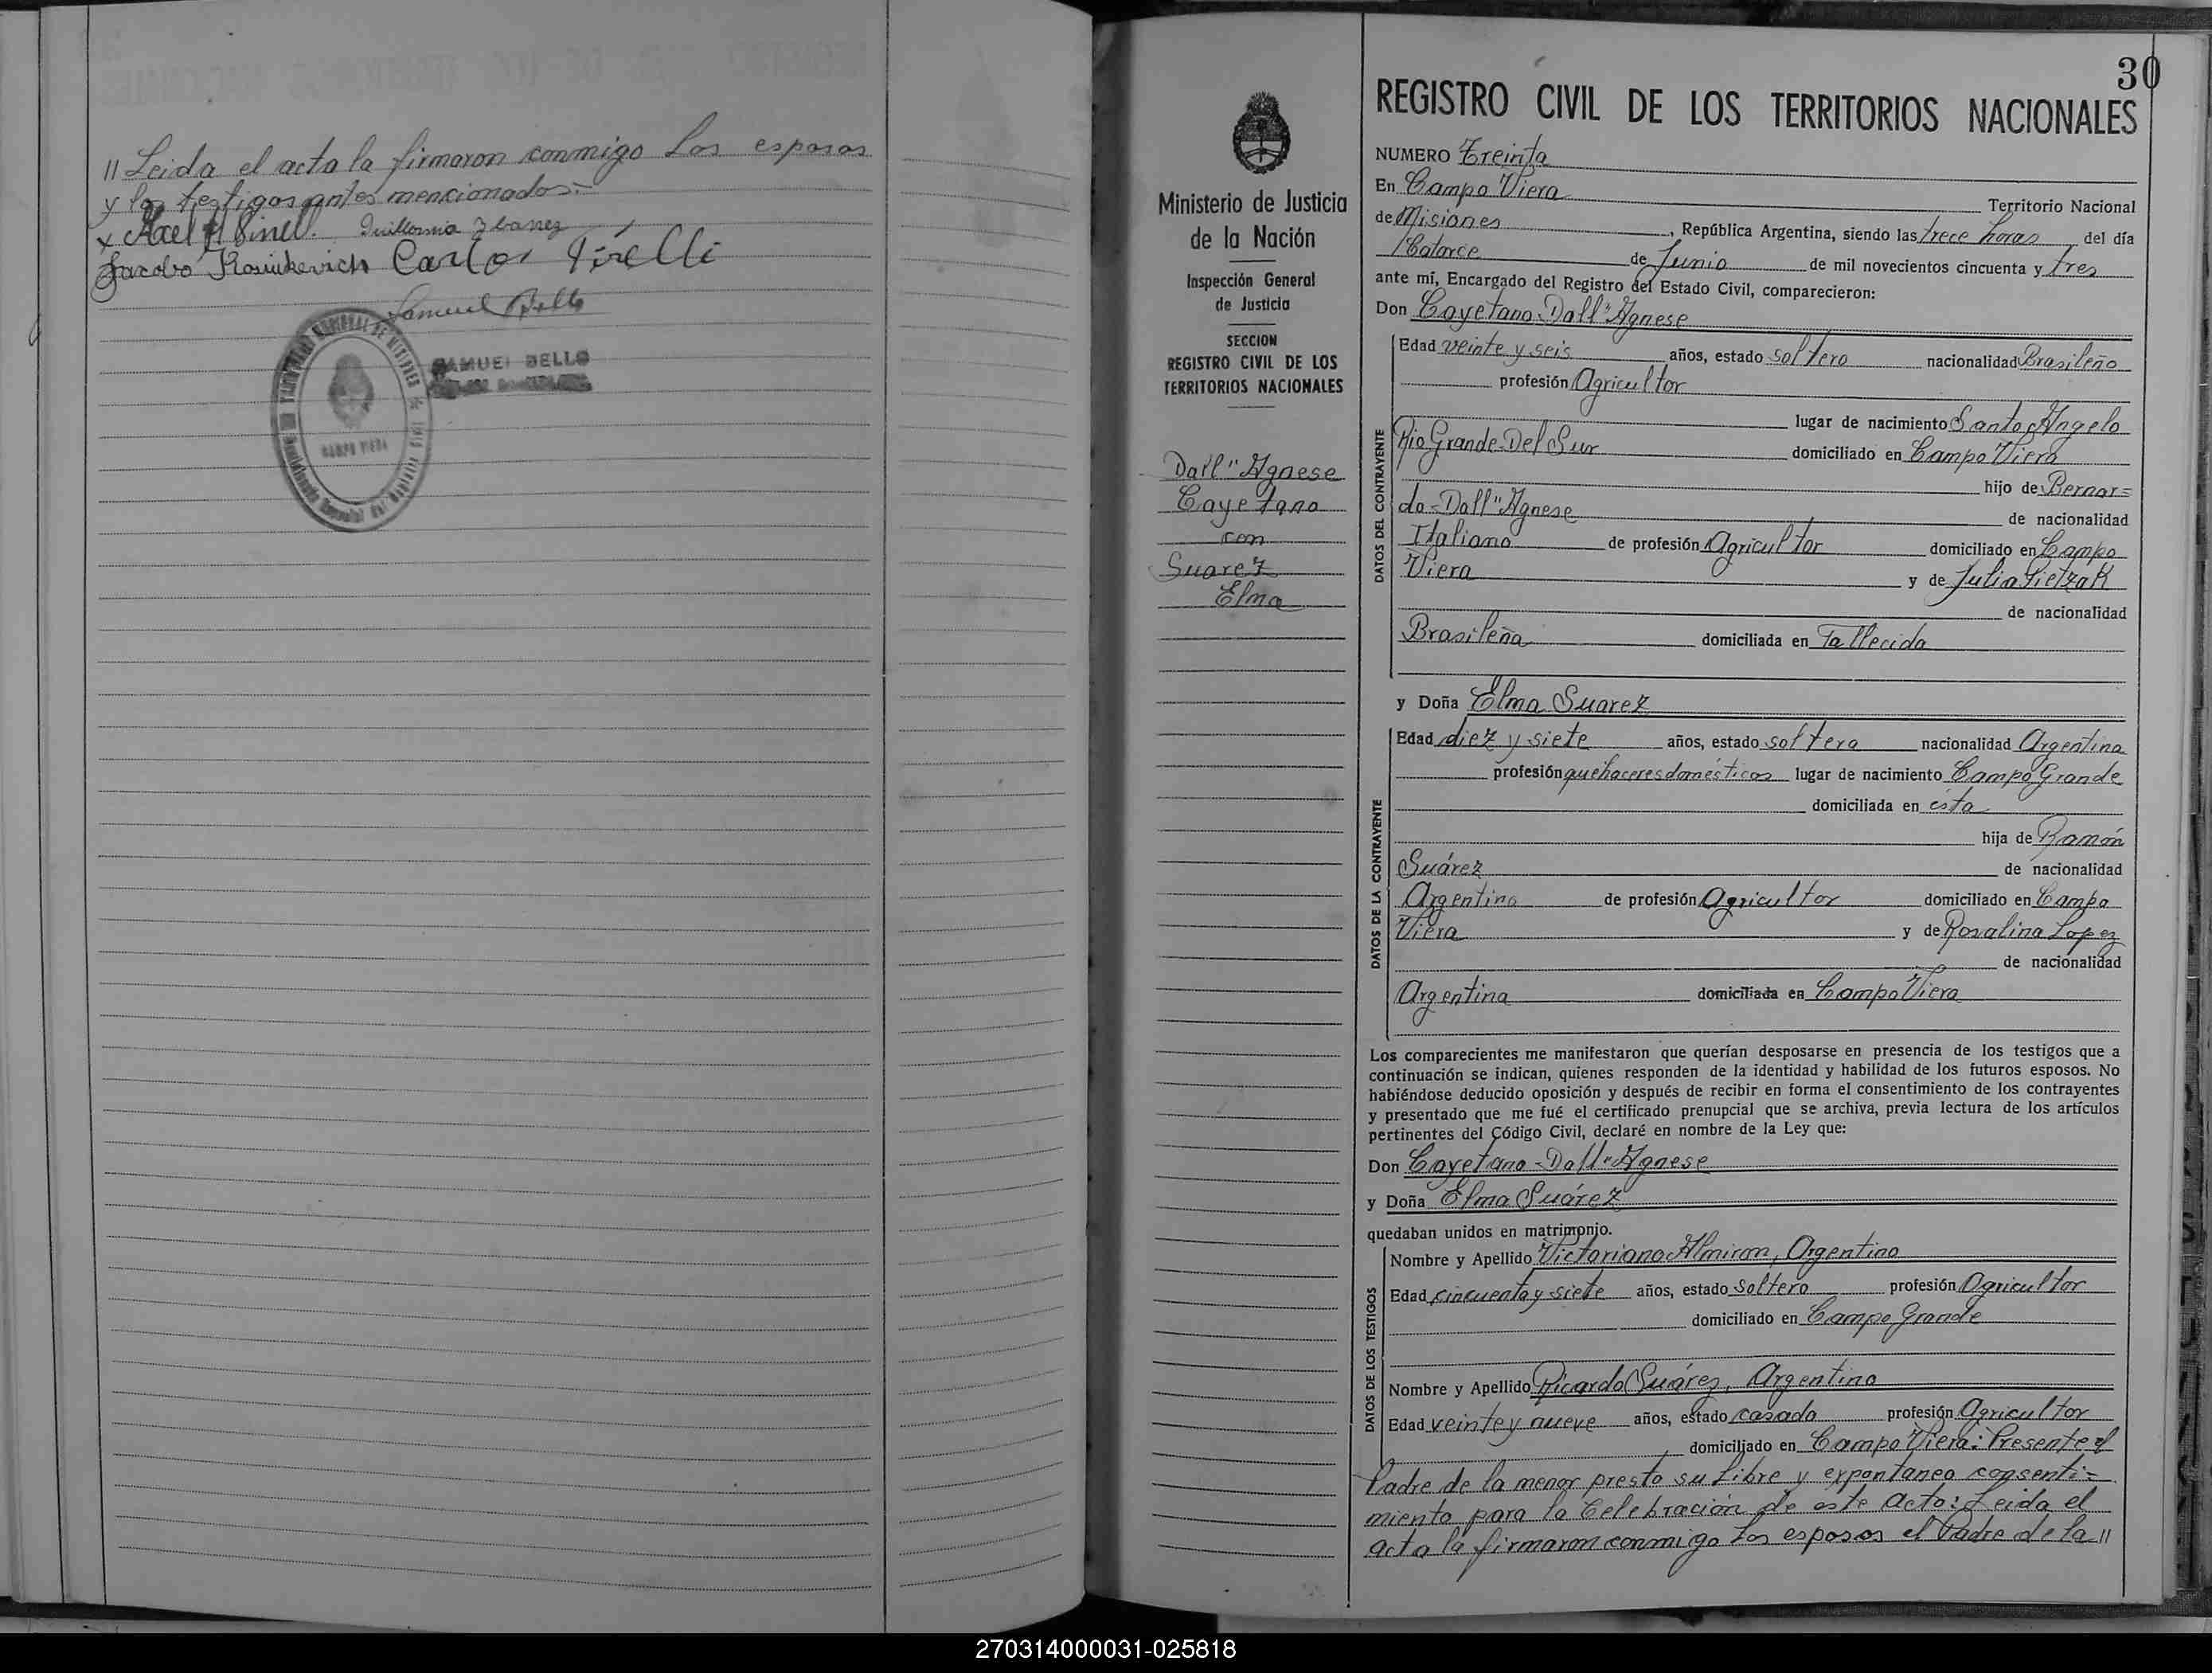 // Leida el acta la firmaron conmigo Los esposos
y los testigos antes mencionados.-
x Axel A Sinel. Guillermia Ibanez
Jacobo Carlos Pirelli
Samuel Bello
SAMUEL BELLO
CAMPO VIERA
30
REGISTRO CIVIL DE LOS TERRITORIOS NACIONALES
Ministerio de Justicia
de la Nación
Inspección General
de Justicia
SECCION
REGISTRO CIVIL DE LOS
TERRITORIOS NACIONALES
Dall" Agnese
Cayetano
con
Suarez
Elma
NUMERO Treinta
En Campo Viera Territorio Nacional
de Misiones, República Argentina, siendo las trece horas del día
Catorce de Junio de mil novecientos cincuenta y tres
ante mí, Encargado del Registro del Estado Civil, comparecieron:
Don Cayetano Dall" Agnese
DATOS DEL CONTRAYENTE
Edad veinte y seis años, estado soltero nacionalidad Brasileño
profesión Agricultor
lugar de nacimiento Santo Angelo
Rio Grande Del Sur domiciliado en Campo Viera
hijo de Bernar=
do-Dall" Agnese de nacionalidad
Italiano de profesión Agricultor domiciliado en Campo
Viera y de Julia Pietzak
de nacionalidad
Brasileña domiciliada en Fallecida
y Doña Elma Suarez
DATOS DE LA CONTRAYENTE
Edad diez y siete años, estado soltera nacionalidad Argentina
profesión quehaceres domésticos lugar de nacimiento Campo Grande
domiciliada en ésta
hija de Ramón
Suárez de nacionalidad
Argentino de profesión Agricultor domiciliado en Campo
Viera y de Rosalina Lopez
de nacionalidad
Argentina domiciliada en Campo Viera
Los comparecientes me manifestaron que querían desposarse en presencia de los testigos que a
continuación se indican, quienes responden de la identidad y habilidad de los futuros esposos. No
habiéndose deducido oposición y después de recibir en forma el consentimiento de los contrayentes
y presentado que me fué el certificado prenupcial que se archiva, previa lectura de los artículos
pertinentes del Código Civil, declaré en nombre de la Ley que:
Don Cayetano-Dall" Agnese
y Doña Elma Suárez
quedaban unidos en matrimonio.
DATOS DE LOS TESTIGOS
Nombre y Apellido Victoriano Almiron, Argentino
Edad cincuenta y siete años, estado soltero profesión Agricultor
domiciliado en Campo Grande
Nombre y Apellido Ricardo Suárez, Argentino
Edad veinte y nueve años, estado casado profesión Agricultor
domiciliado en Campo Viera: Presente el
Padre de la menor presto su libre y expontaneo consenti=
miento para la Celebración de este Acto: Leida el
acta la firmaron conmigo Los esposos el Padre de la //
270314000031-025818